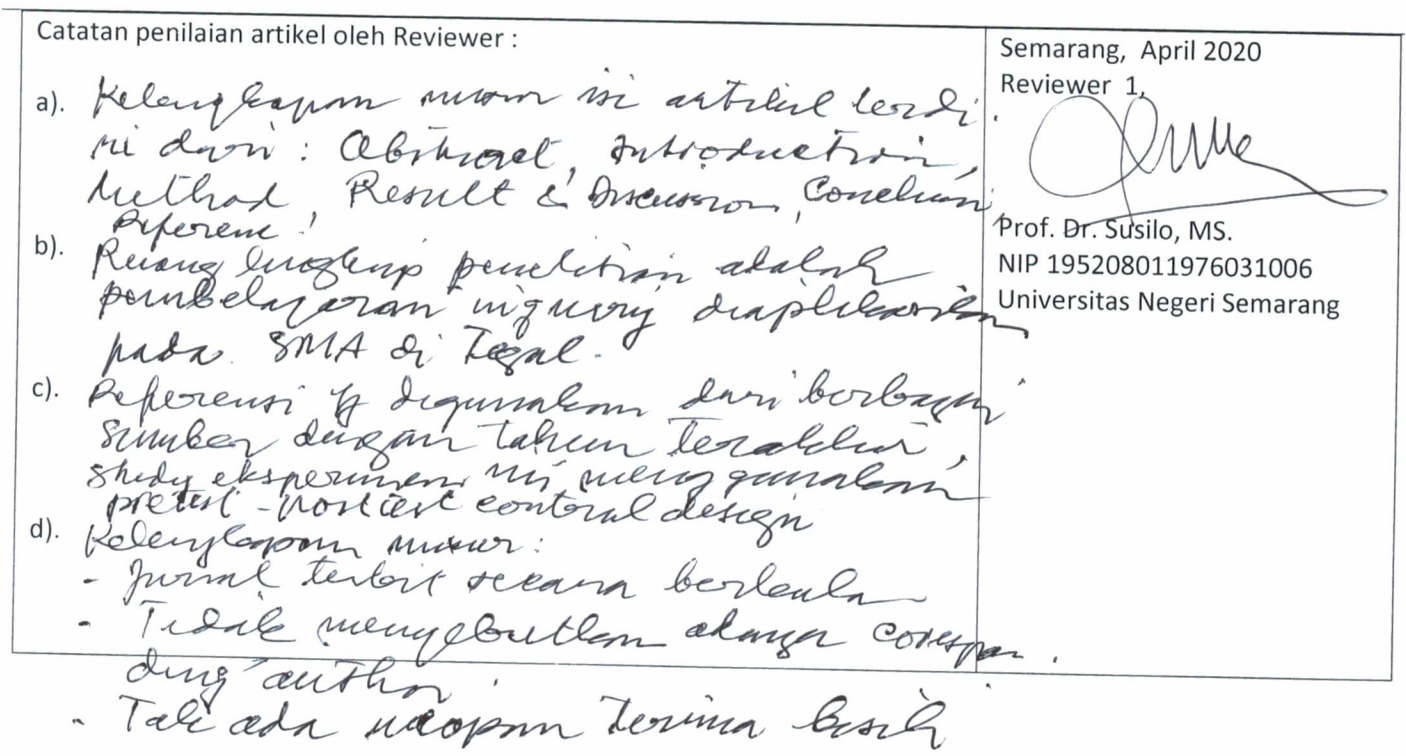 Catatan penilaian artikel oleh Reviewer :
a). Kelengkapan unsur isi artikel terdi
ri dari : Abstract, Introduction,
Method, Result & Discussion, Conclusion
Referenc.
b). Ruang lingkup penelitian adalah
pembelajaran inquiry diaplikasikan
pada SMA di Tegal.
c). Referensi yg digunakan dari berbagai
sumber dengan tahun terakhir,
study eksperimen ini menggunakan
pretest - postest control design
d). Kelengkapan unsur :
- Jurnal terbit secara berkala
- Tidak menyebutkan adanya corespon
ding author.
- Tak ada ucapan terima kasih
Semarang, April 2020
Reviewer 1,
Prof. Dr. Susilo, MS.
NIP 195208011976031006
Universitas Negeri Semarang